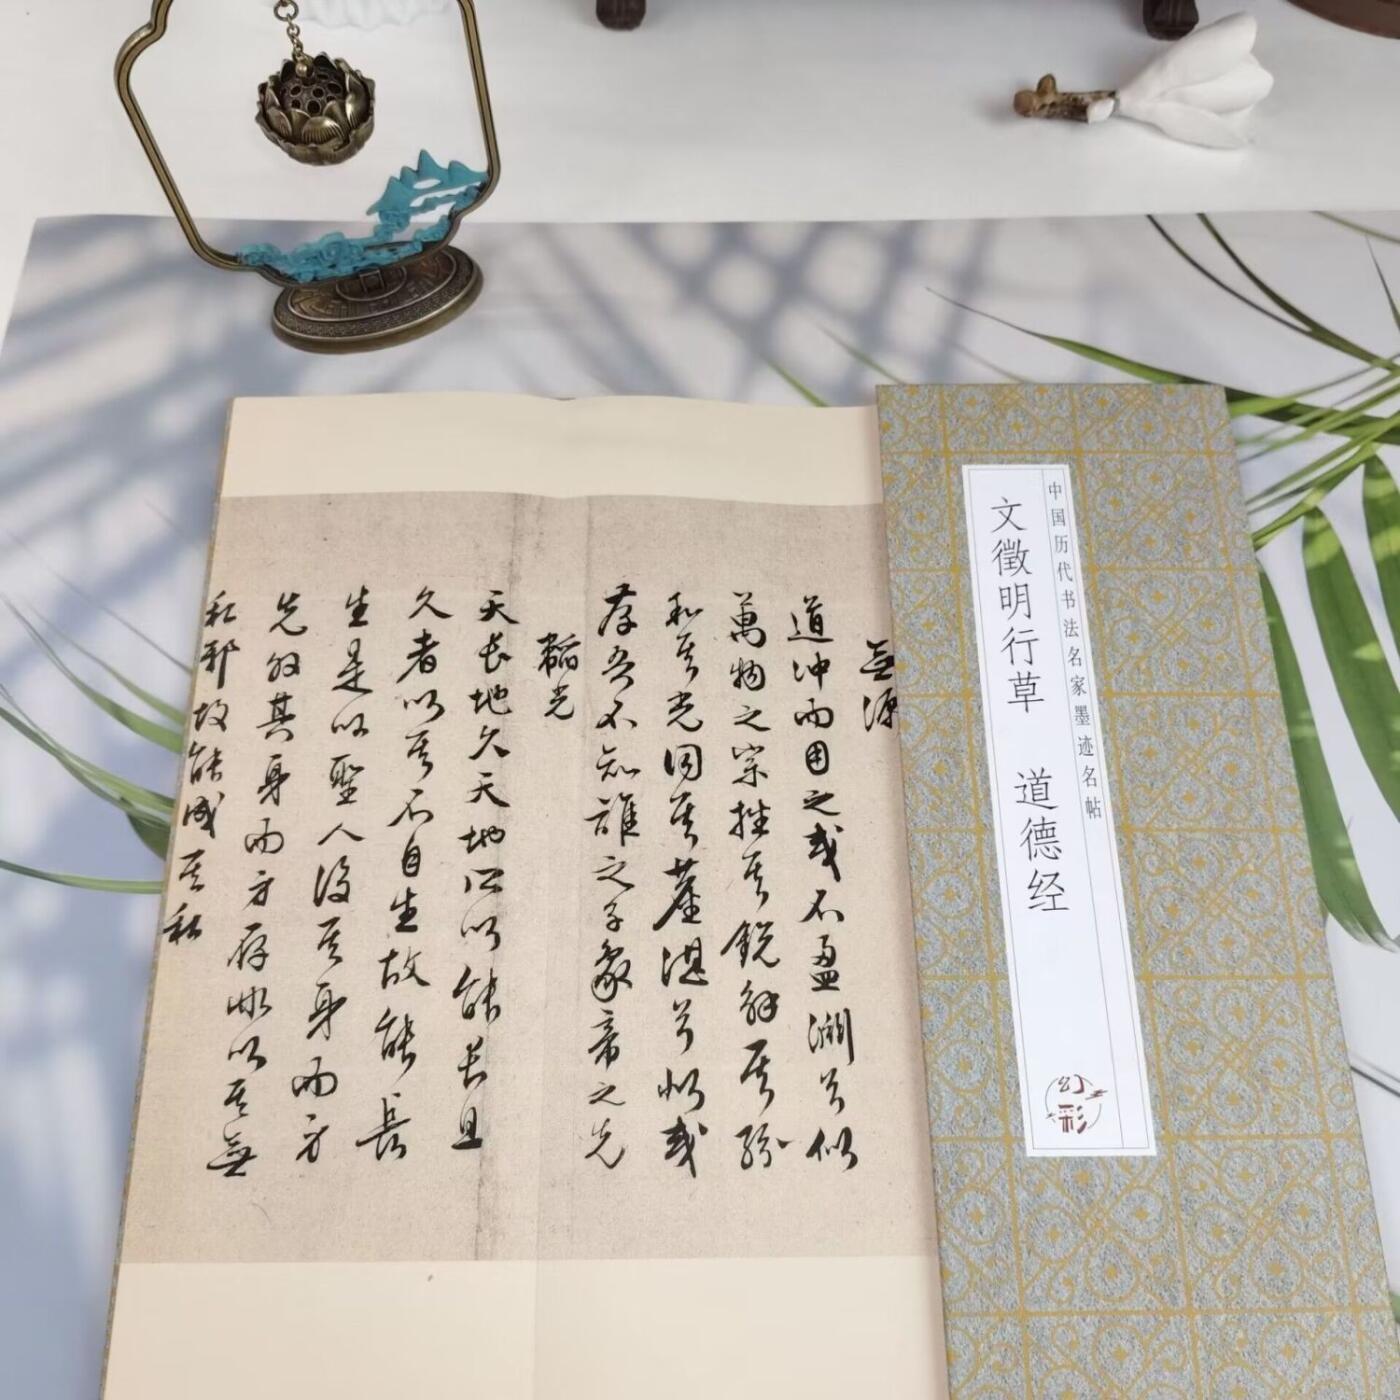 中国历代书法名家墨迹名帖
文徵明行草 道德经
幻彩
無源
道沖而用之或不盈淵兮似
萬物之宗挫其銳解其紛
和其光同其塵湛兮似或
存吾不知誰之子象帝之先
韜光
天長地久天地所以能長且
久者以其不自生故能長
生是以聖人後其身而身
先外其身而身存非以其無
私耶故能成其私